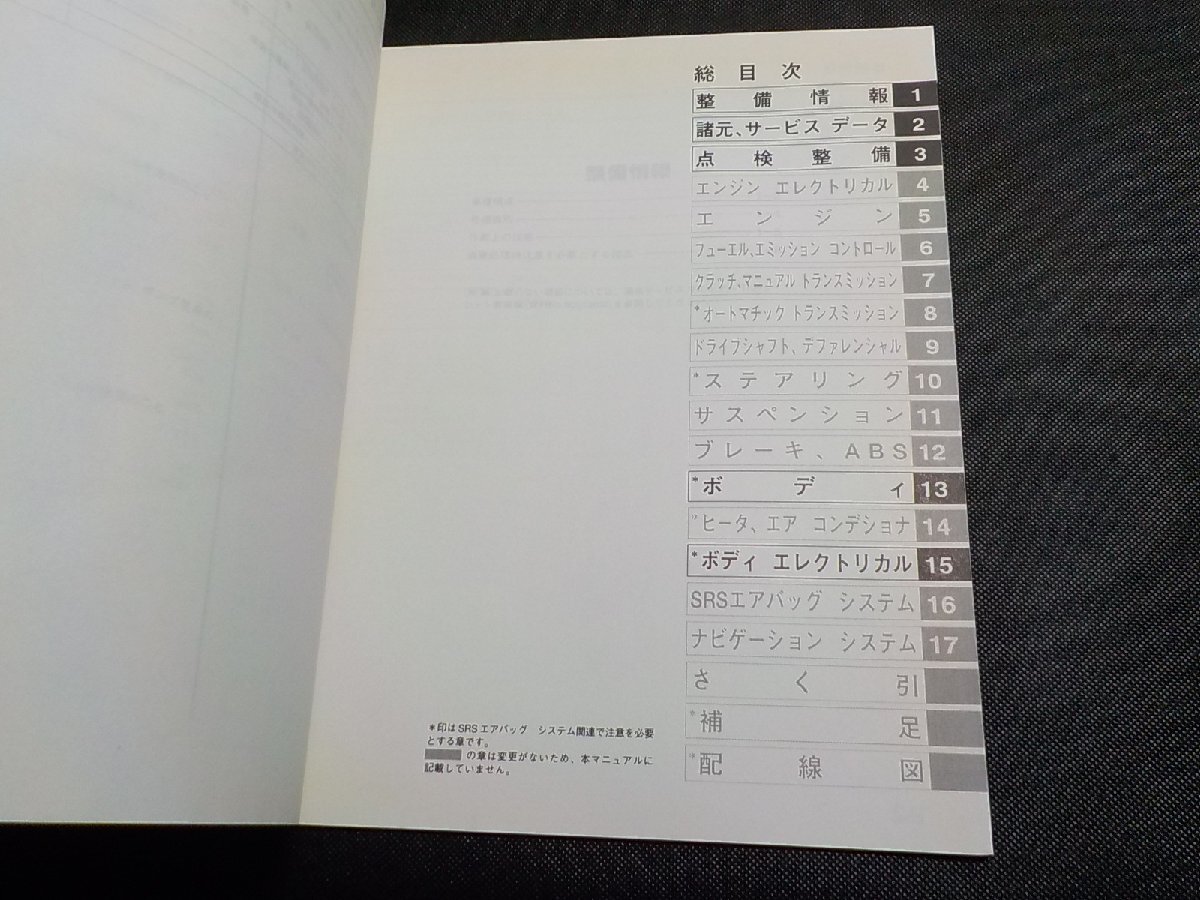 総目次
整備情報 1
諸元、サービス データ 2
点検整備 3
エンジン エレクトリカル 4
エンジン 5
フューエル、エミッション コントロール 6
クラッチ、マニュアル トランスミッション 7
*オートマチック トランスミッション 8
ドライブシャフト、デファレンシャル 9
*ステアリング 10
サスペンション 11
ブレーキ、ABS 12
*ボディ 13
*ヒータ、エア コンデショナ 14
*ボディ エレクトリカル 15
SRSエアバッグ システム 16
ナビゲーション システム 17
さく引
*補足
*配線図
*印はSRSエアバッグ システム関連で注意を必要
とする章です。
の章は変更がないため、本マニュアルに
記載していません。